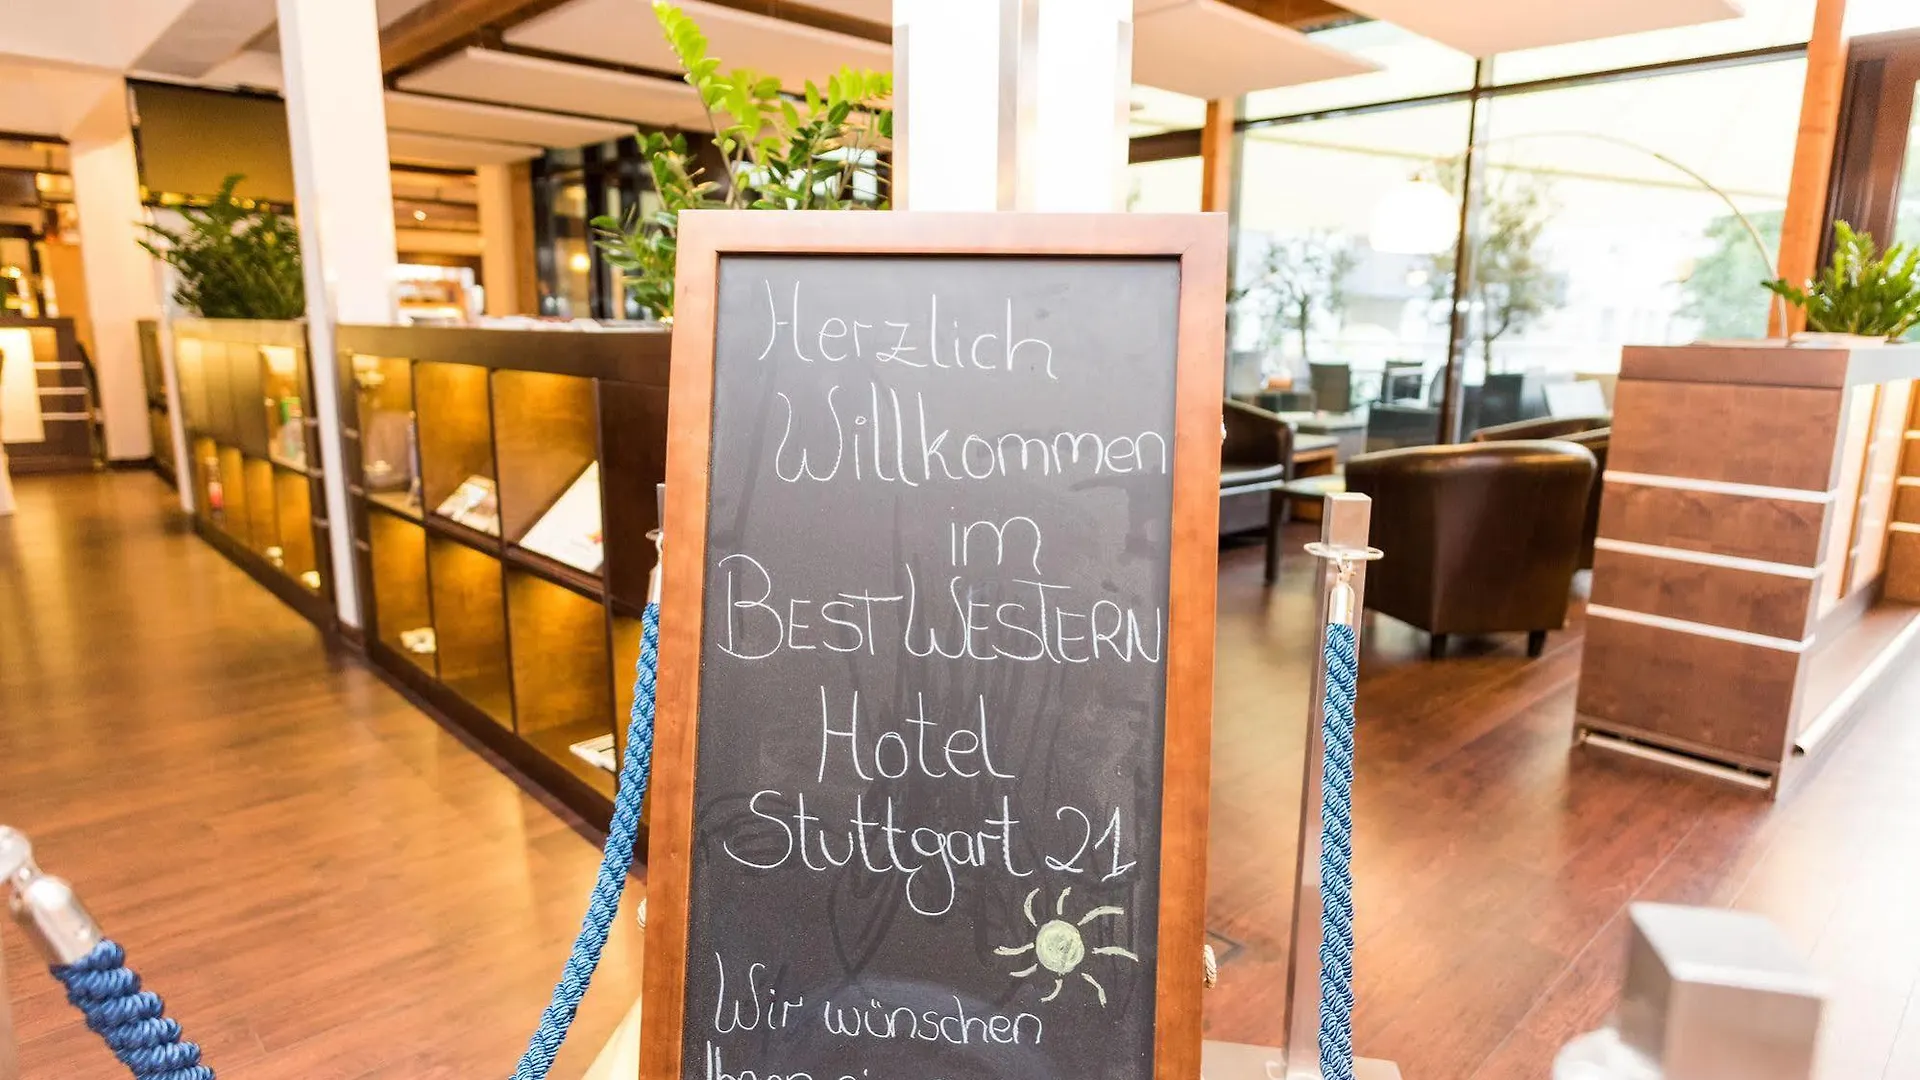 Herzlich
Willkommen
im
BEST WESTERN
Hotel
Stuttgart 21
Wir wünschen